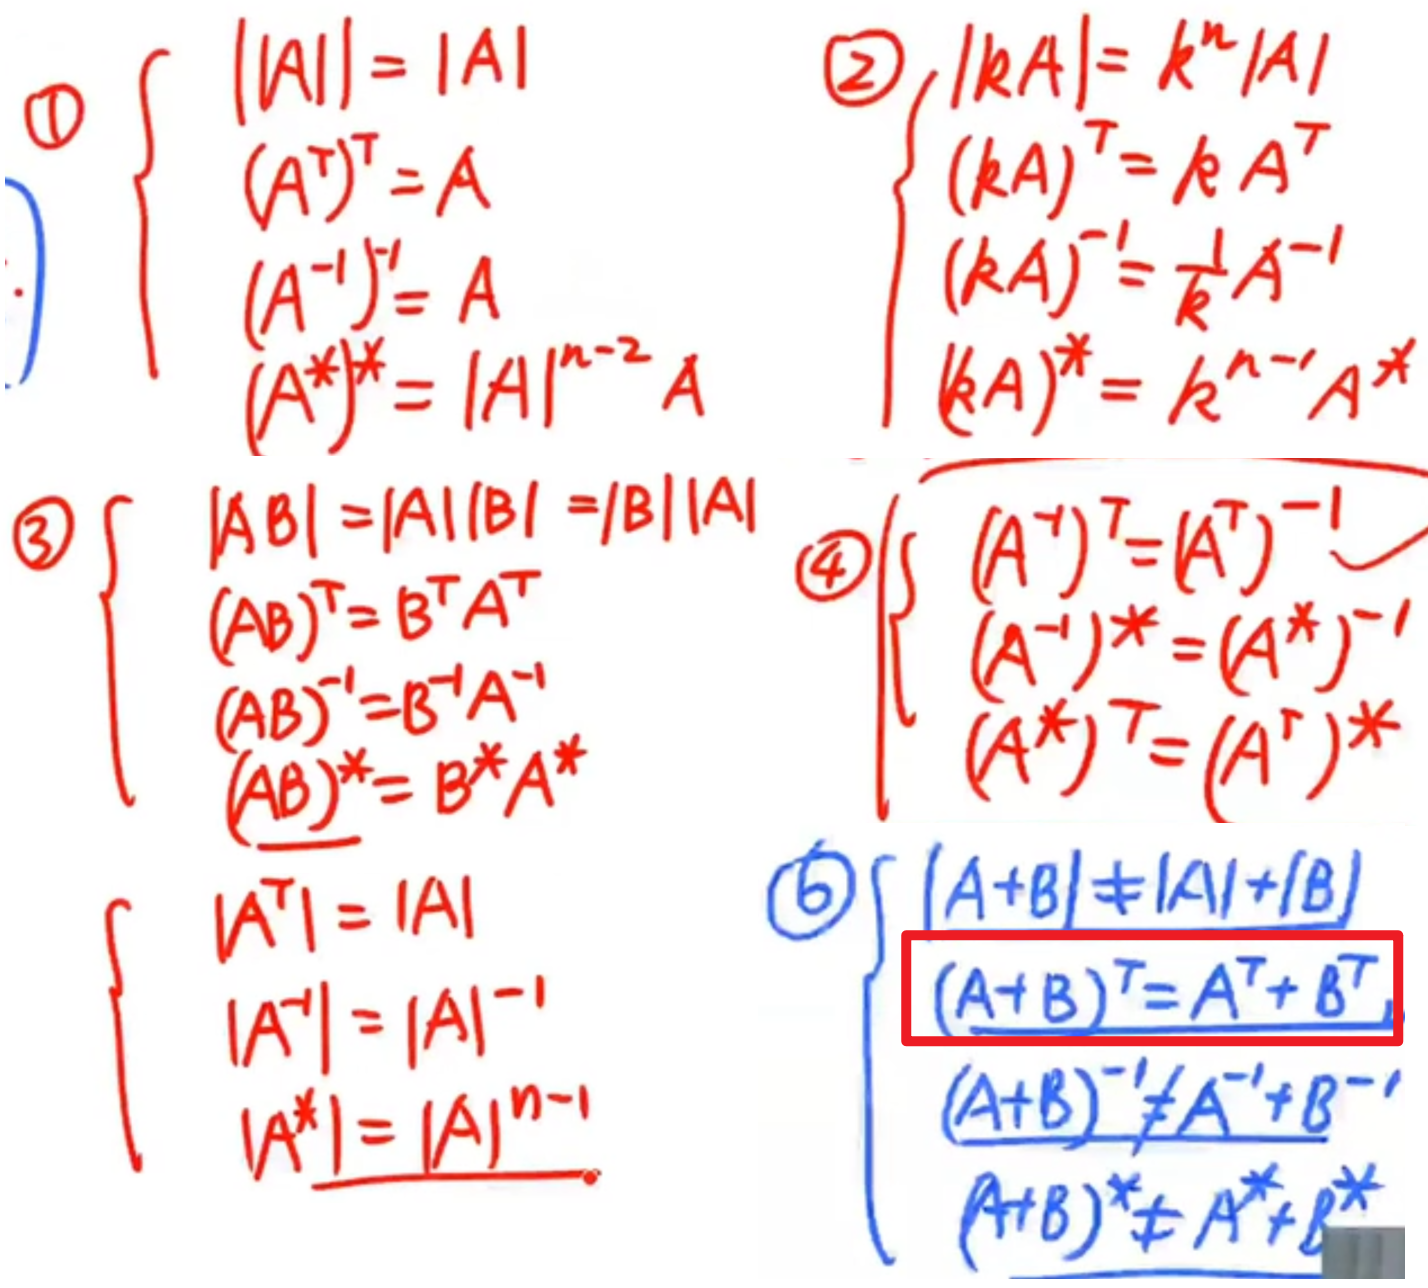 ①
||A|| = |A|
(Aᵀ)ᵀ = A
(A⁻¹)⁻¹ = A
(A*)* = |A|ⁿ⁻² A
②
|kA| = kⁿ|A|
(kA)ᵀ = k Aᵀ
(kA)⁻¹ = 1/k A⁻¹
(kA)* = kⁿ⁻¹ A*
③
|AB| = |A||B| = |B||A|
(AB)ᵀ = Bᵀ Aᵀ
(AB)⁻¹ = B⁻¹ A⁻¹
(AB)* = B* A*
④
(A⁻¹)ᵀ = (Aᵀ)⁻¹
(A⁻¹)* = (A*)⁻¹
(A*)ᵀ = (Aᵀ)*
|Aᵀ| = |A|
|A⁻¹| = |A|⁻¹
|A*| = |A|ⁿ⁻¹
⑥
|A+B| ≠ |A|+|B|
(A+B)ᵀ = Aᵀ + Bᵀ
(A+B)⁻¹ ≠ A⁻¹ + B⁻¹
(A+B)* ≠ A* + B*